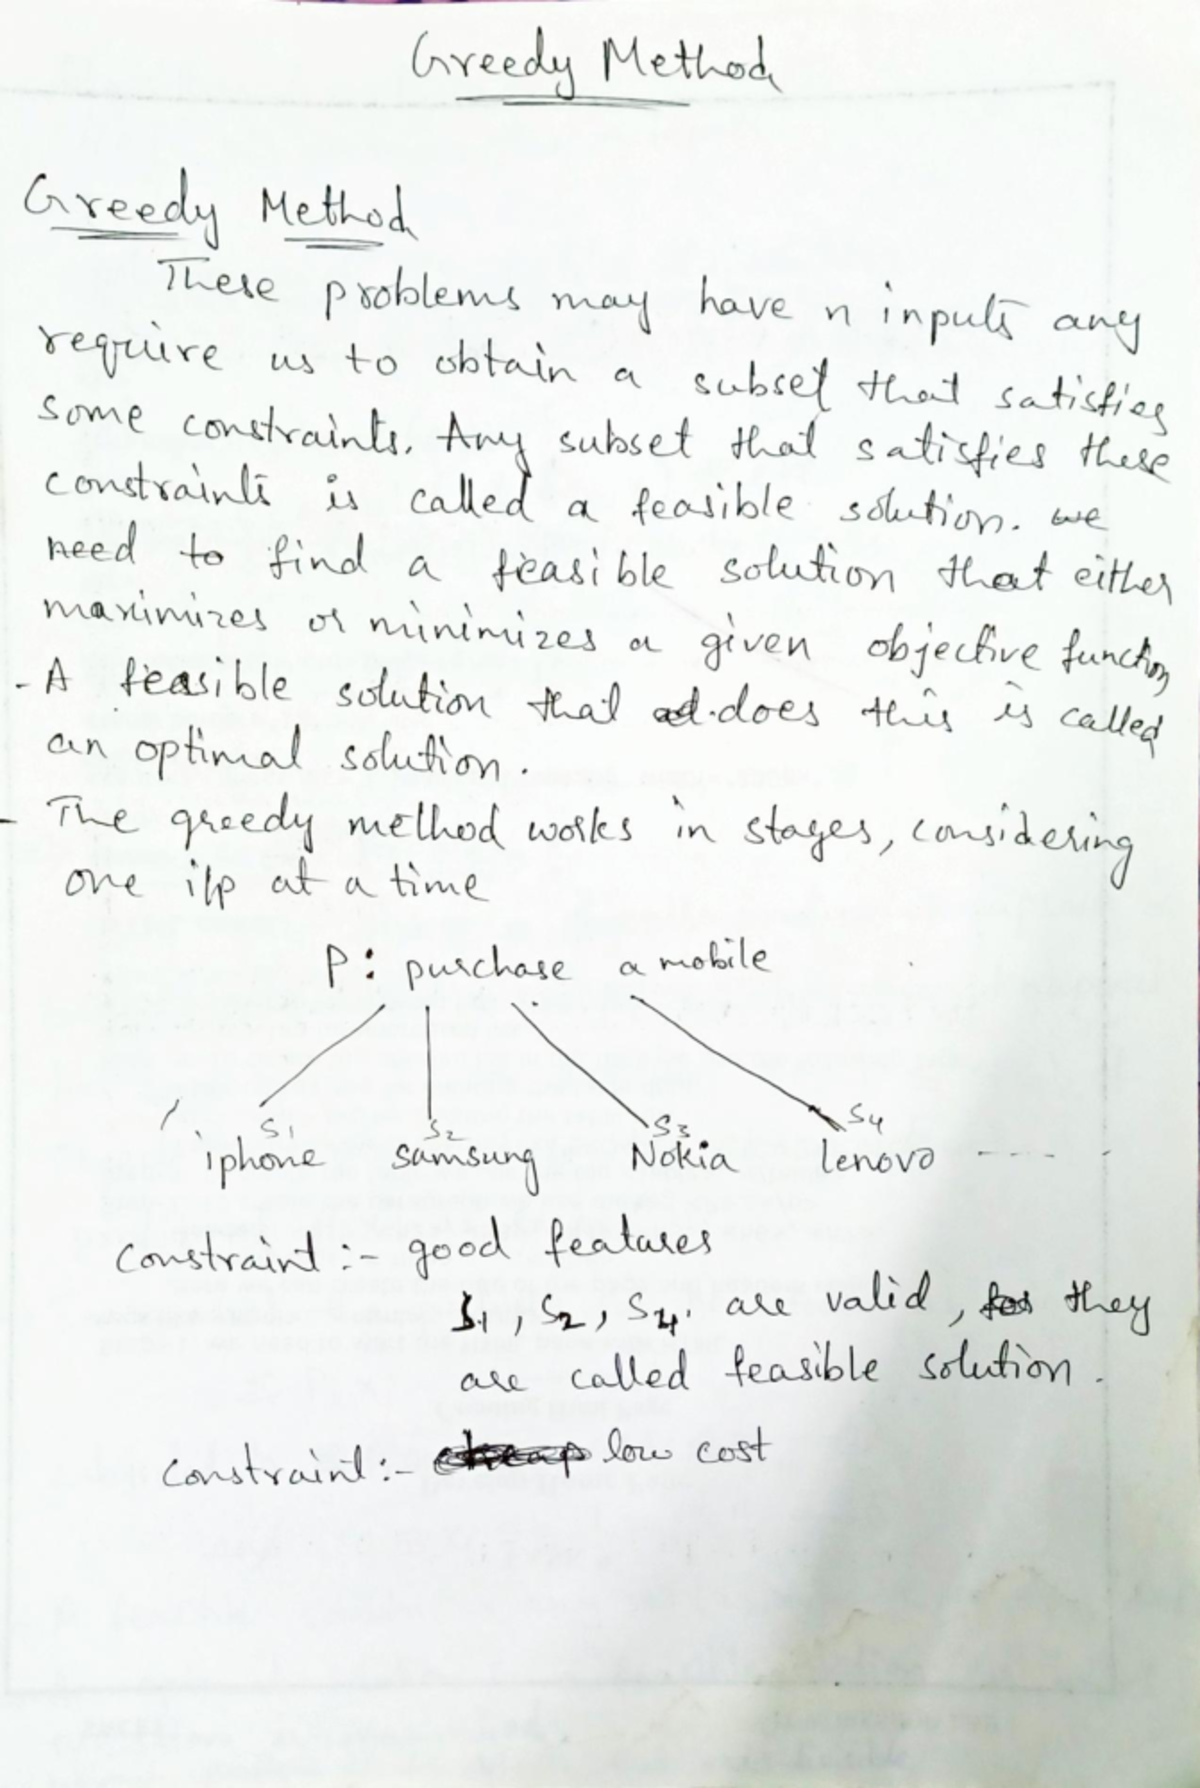 Greedy Method
Greedy Method
These problems may have n inputs any
require us to obtain a subset that satisfies
some constraints. Any subset that satisfies these
constraints is called a feasible solution. we
need to find a feasible solution that either
maximizes or minimizes a given objective function
- A feasible solution that does this is called
an optimal solution.
- The greedy method works in stages, considering
one i/p at a time
P: purchase a mobile
S1 S2 S3 S4
iphone samsung Nokia lenovo ----
constraint :- good features
S1, S2, S4. are valid, they
are called feasible solution.
constraint :- low cost